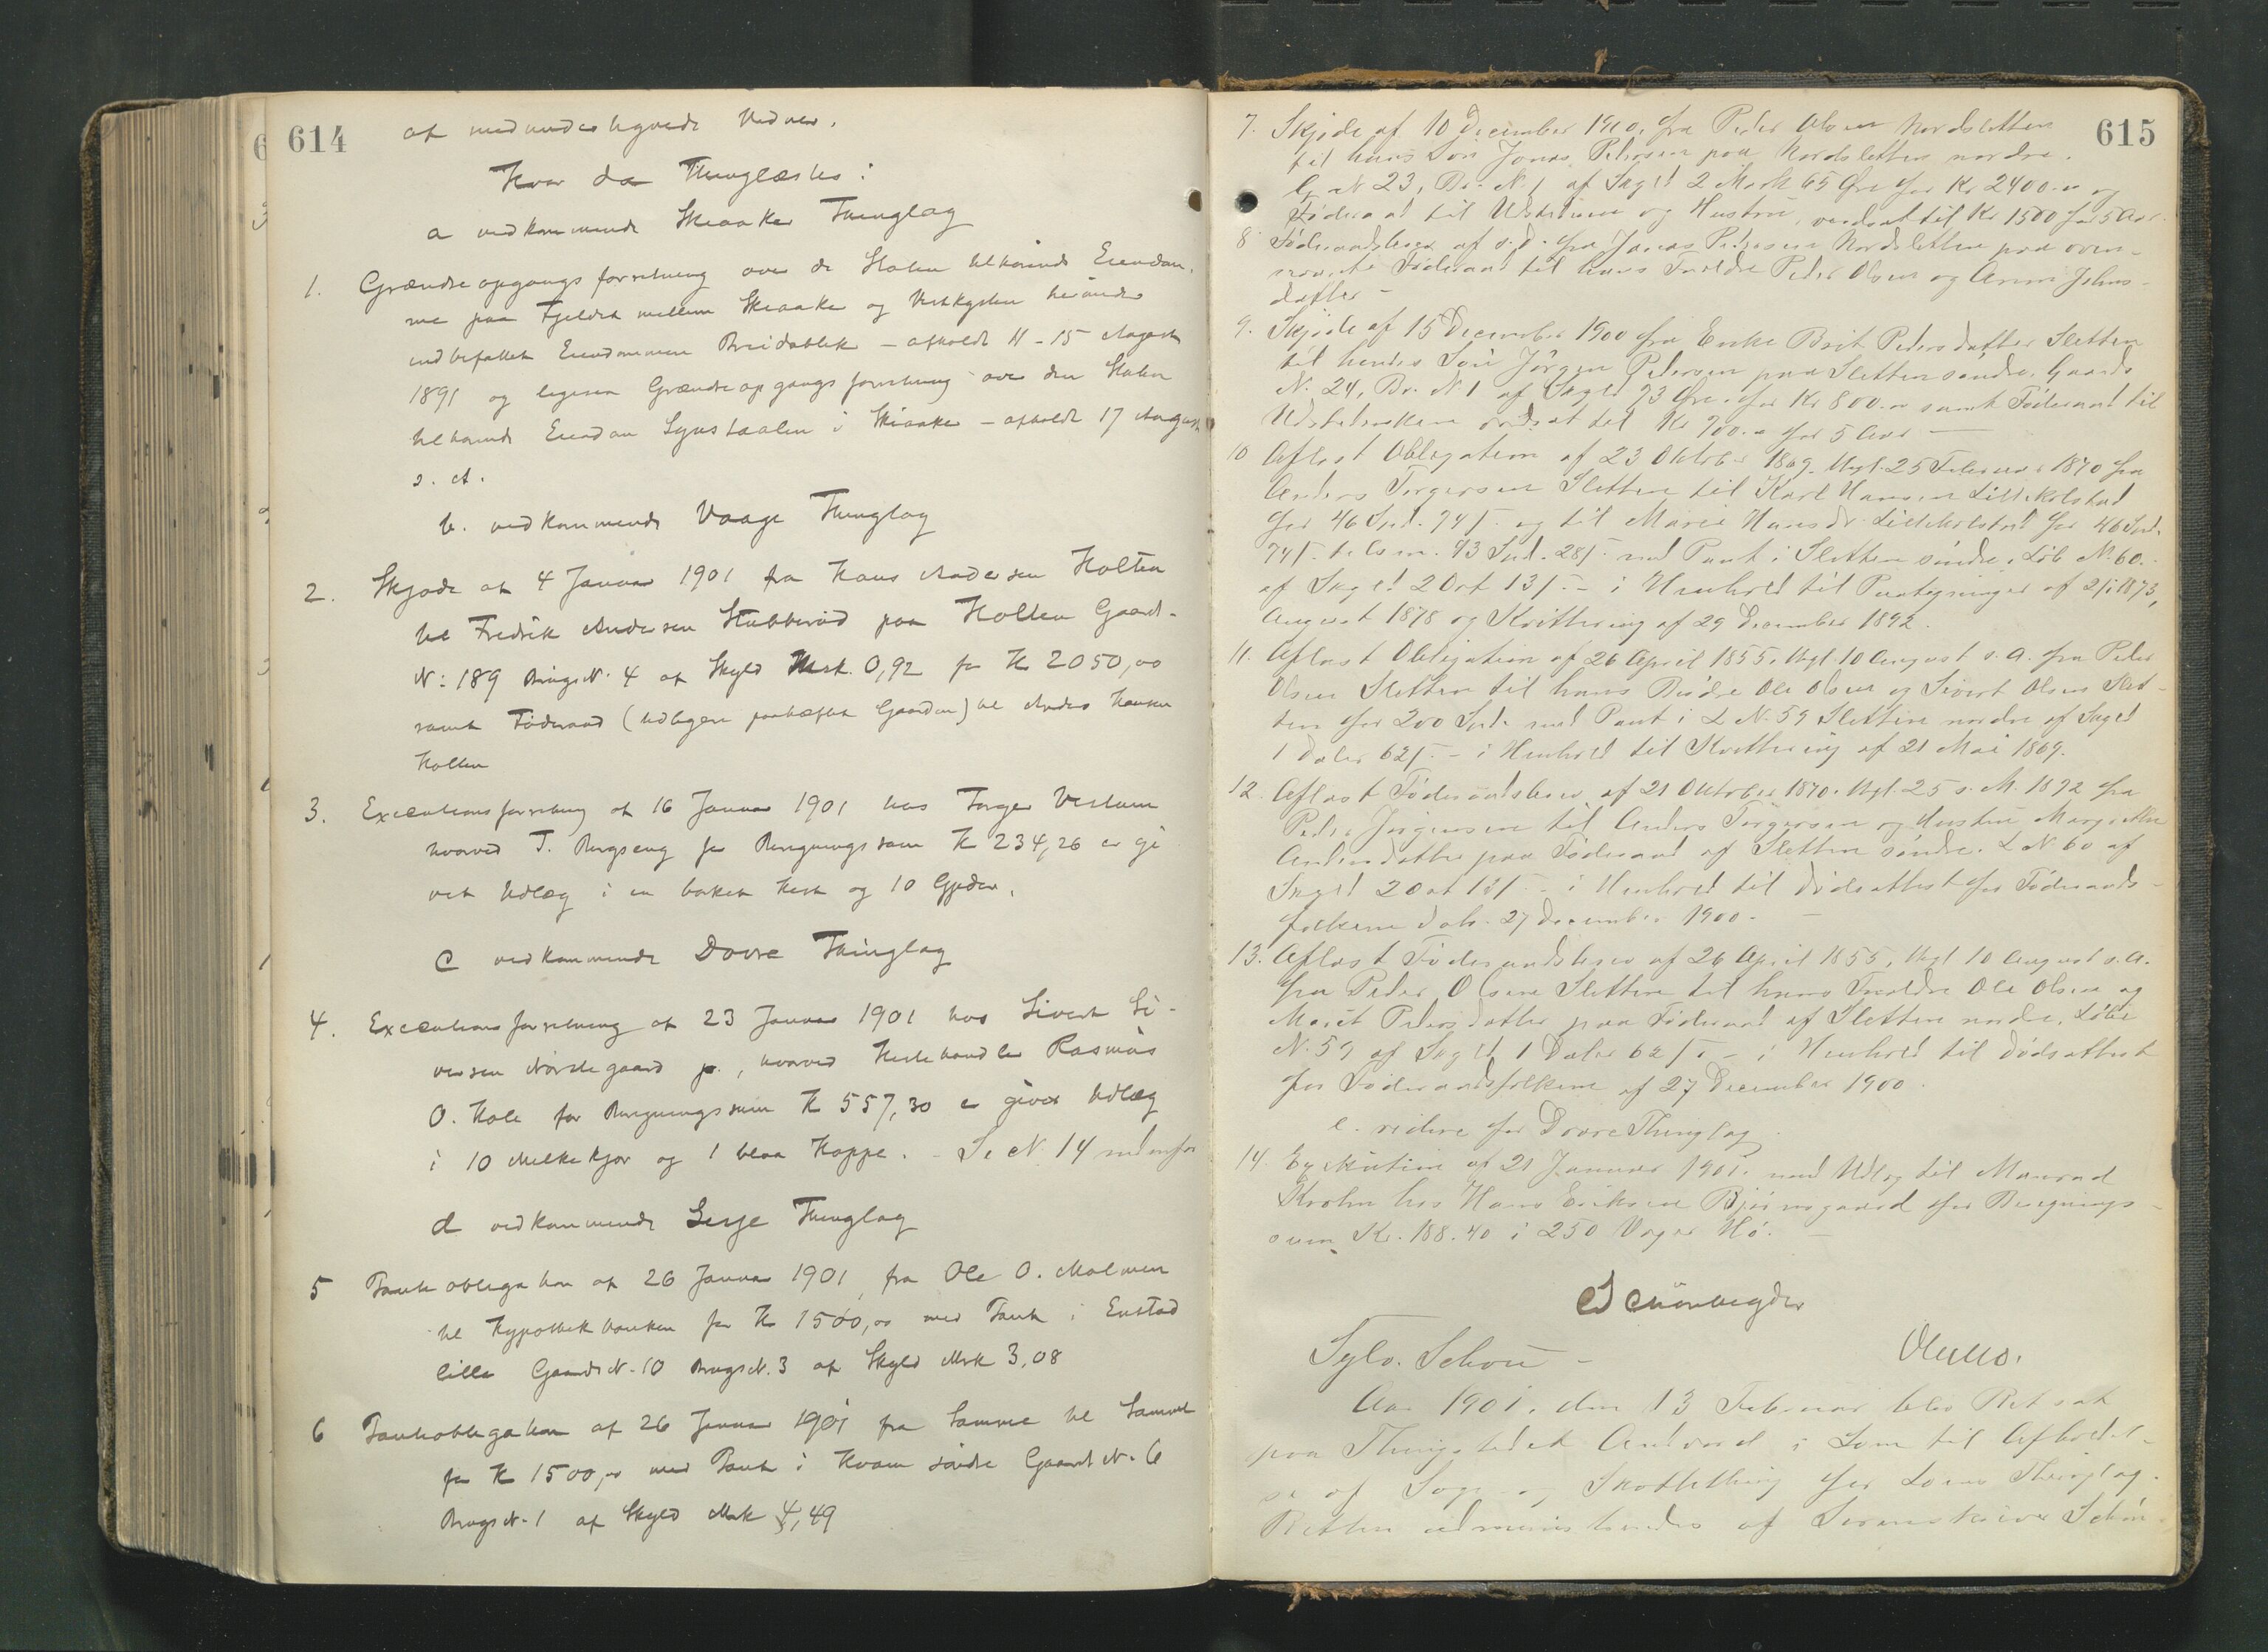 614
af medunderlignede Vidner.
Hvor da Thinglæstes:
a vedkommende Skiaaker Thinglag
1. Grændseopgangsforretning over de Staten tilhørende Eiendom-
me paa Fjeldet mellem Skiaaker og Vestkysten herunder
indbefattet Eiendommen Breidablik - afholdt 11-15 August
1891 og ligesaa Grændseopgangsforretning over den Staten
tilhørende Eiendom Synstaalen i Skiaaker - afholdt 17 August
s. A.
b. vedkommende Vaage Thinglag
2. Skjøde af 4 Januar 1901 fra Hans Andersen Holten
til Fredrik Andersen Stubberud paa Holten Gaards-
N: 189 BrugsN. 4 af Skyld Mrk. 0,92 for Kr 2050,00
samt Føderaad (tidligere paahæftet Gaarden) til Anders Hansen
Holten
3. Executionsforretning af 16 Januar 1901 hos Torger Veslum
hvorved T. Bergseng for Beregningssum Kr 234,26 er gi
vet Udlæg i en borket Hest og 10 Gjeder.
C vedkommende Dovre Thinglag
4. Executionsforretning af 23 Januar 1901 hos Sivert Si-
versen Nørstegaard jr., hvorved Hestehandler Rasmus
O. Hole for Beregningssum Kr 557,30 er givet Udlæg
i 10 Melkekjør og 1 blaa Hoppe. - Se N 14 nedenfor
d vedkommende Lesje Thinglag
5 Panteobligation af 26 Januar 1901 fra Ole O. Molmen
til Hypothekbanken for Kr 1500,00 med Pant i Enstad
lille GaardsN. 10 BrugsN. 3 af Skyld Mrk 3,08
6 Panteobligation af 26 Januar 1901 fra Samme til Samme
for Kr 1500,00 med Pant i Kvam søndre GaardsN. 6
BrugsN. 1 af Skyld Mrk 4,49
615
7. Skjøde af 10 December 1900, fra Peder Olsen Nordsletten
til hans Søn Jonas Pedersen paa Nordsletten nordre.
G. N 23, Br. N. 1 af Skyld 2 Mark 65 Øre for Kr 2400.00 og
Føderaad til Udstederen og Hustru, værdsat til Kr 1500 for 5 Aar.
8 Føderaadsbrev af s. d. fra Jonas Pedersen Nordsletten paa oven-
nævnte Føderaad til hans Forældre Peder Olsen og Anne Johns-
datter -
9. Skjøde af 15 December 1900 fra Enke Brit Pedersdatter Sletten
til hendes Søn Jørgen Pedersen paa Sletten søndre. Gaards
N. 24, Br. N 1 af Skyld 73 Øre for Kr 800.00 samt Føderaad til
Udstedersken værdsat til Kr 700.00 for 5 Aar -
10 Aflæst Obligation af 23 Oktober 1869. thgl. 25 Februar 1870 fra
Anders Torgersen Sletten til Karl Hansen Lillekolstad
for 46 Spd. 74 ſ. og til Marie Hansdr. Lillekolstad for 46 Spd.
74 ſ. tilsm. 93 Spd. 28 ſ. med Pant i Sletten søndre, Løb N. 60.
af Skyld 2 Ort 13 ſ. - i Henhold til Paategninger af 2/1 1873,
August 1878 og Kvittering af 29 December 1892.
11. Aflæst Obligation af 26 April 1855. thgl. 10 August s. A. fra Peder
Olsen Sletten til hans Brødre Ole Olsen og Sivert Olsen Slet-
ten for 200 Spd. med Pant i L N. 59 Sletten nordre af Skyld
1 Daler 62 ſ. - i Henhold til Kvittering af 21 Mai 1869.
12. Aflæst Føderaadsbrev af 21 Oktober 1870. thgl. 25 s. M. 1892 fra
Peder Jørgensen til Anders Torgersen og Hustru Margrethe
Andersdatter paa Føderaad af Sletten søndre. L N 60 af
Skyld 2 Ort 13 ſ. - i Henhold til Dødsattest for Føderaads-
folkene dat. 27 December 1900. -
13. Aflæst Føderaadsbrev af 26 April 1855, thgl 10 August s. A.
fra Peder Olsen Sletten til hans Forældre Ole Olsen og
Marit Pedersdatter paa Føderaad af Sletten nordre. Løbe
N. 59 af Skyld 1 Daler 62 ſ. - i Henhold til Dødsattest
for Føderaadsfolkene af 27 December 1900.
e. videre for Dovre Thinglag.
14. Exekution af 21 Januar 1901. med Udlæg til Monrad
Krohn hos Hans Eriksen Bjørnsgaard for Beregnings-
sum Kr. 188.40 i 250 Voger Hø. -
Schönbegder
Sylv. Schou -
Aar 1901. den 13 Februar blev Ret sat
paa Thingstedet Andvord i Lom til Afholdel-
se af Sage- og Skattething for Loms Thinglag.
Retten administreredes af Sorenskriver Schön-